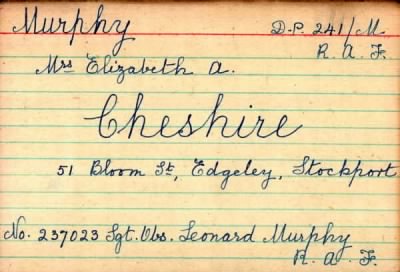 Murphy D.P. 241/M
R. A. F.
Mrs Elizabeth A.
Cheshire
51 Bloom St, Edgeley, Stockport
No. 237023 Sgt. Obs. Leonard Murphy
R. A. F.